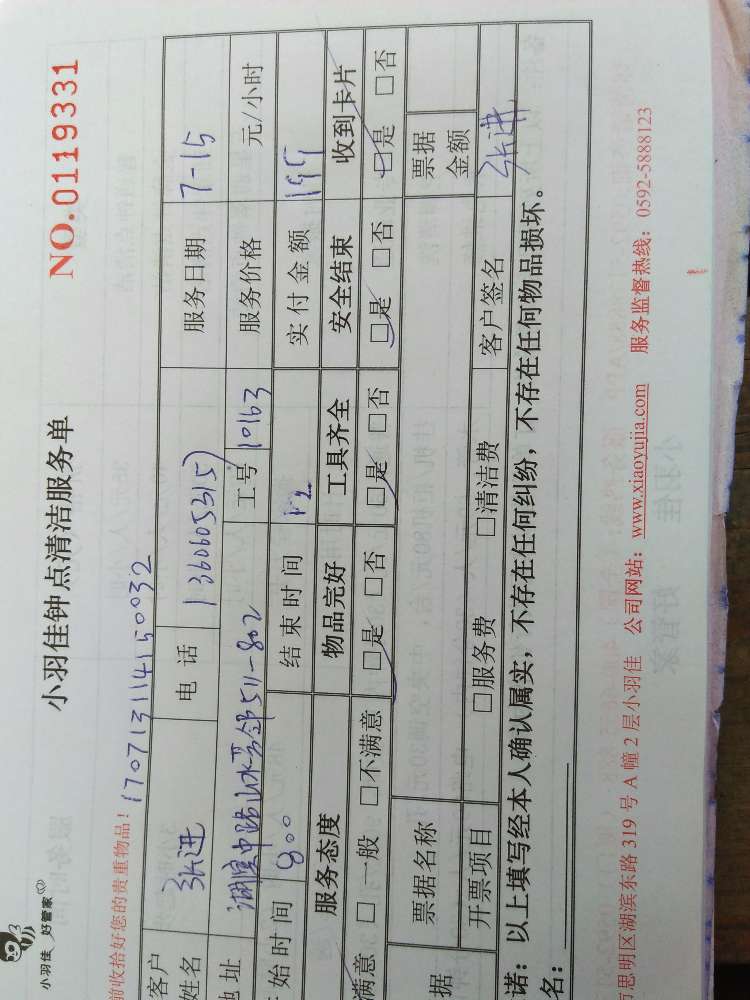 小羽佳 好管家
小羽佳钟点清洁服务单
NO.0119331
前收拾好您的贵重物品! 170713114150032
客户姓名 张进 电话 13606053157 服务日期 7-15
地址 湖滨中路山水芳邻511-802 工号 10163 服务价格 元/小时
始时间 800 结束时间 12 实付金额 199
服务态度 物品完好 工具齐全 安全结束 收到卡片
满意 □一般 □不满意 □是 □否 □是 □否 □是 □否 □是 □否
据 票据名称 票据金额
开票项目 □服务费 □清洁费 客户签名 张进
诺：以上填写经本人确认属实，不存在任何纠纷，不存在任何物品损坏。
名：
思明区湖滨东路 319 号 A 幢 2 层小羽佳 公司网站：www.xiaoyujia.com 服务监督热线：0592-5888123